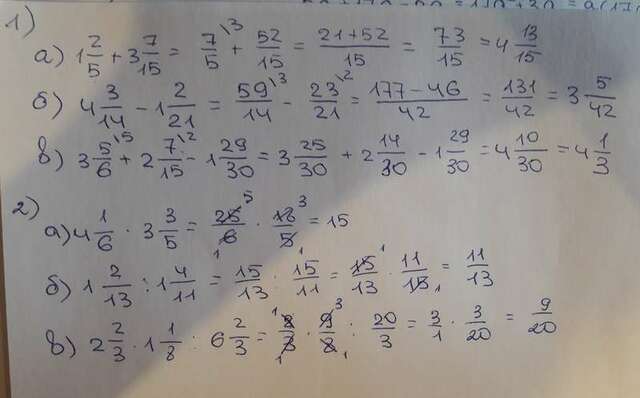 1)
а) 1 2/5 + 3 7/15 = 7/5 \3 + 52/15 = (21+52)/15 = 73/15 = 4 13/15
б) 4 3/14 - 1 2/21 = 59/14 \3 - 23/21 \2 = (177-46)/42 = 131/42 = 3 5/42
в) 3 5/6 \5 + 2 7/15 \2 - 1 29/30 = 3 25/30 + 2 14/30 - 1 29/30 = 4 10/30 = 4 1/3
2)
а) 4 1/6 · 3 3/5 = 25/6 · 18/5 = 15
б) 1 2/13 : 1 4/11 = 15/13 : 15/11 = 15/13 · 11/15 = 11/13
в) 2 2/3 · 1 1/8 : 6 2/3 = 8/3 · 9/8 : 20/3 = 3/1 · 3/20 = 9/20